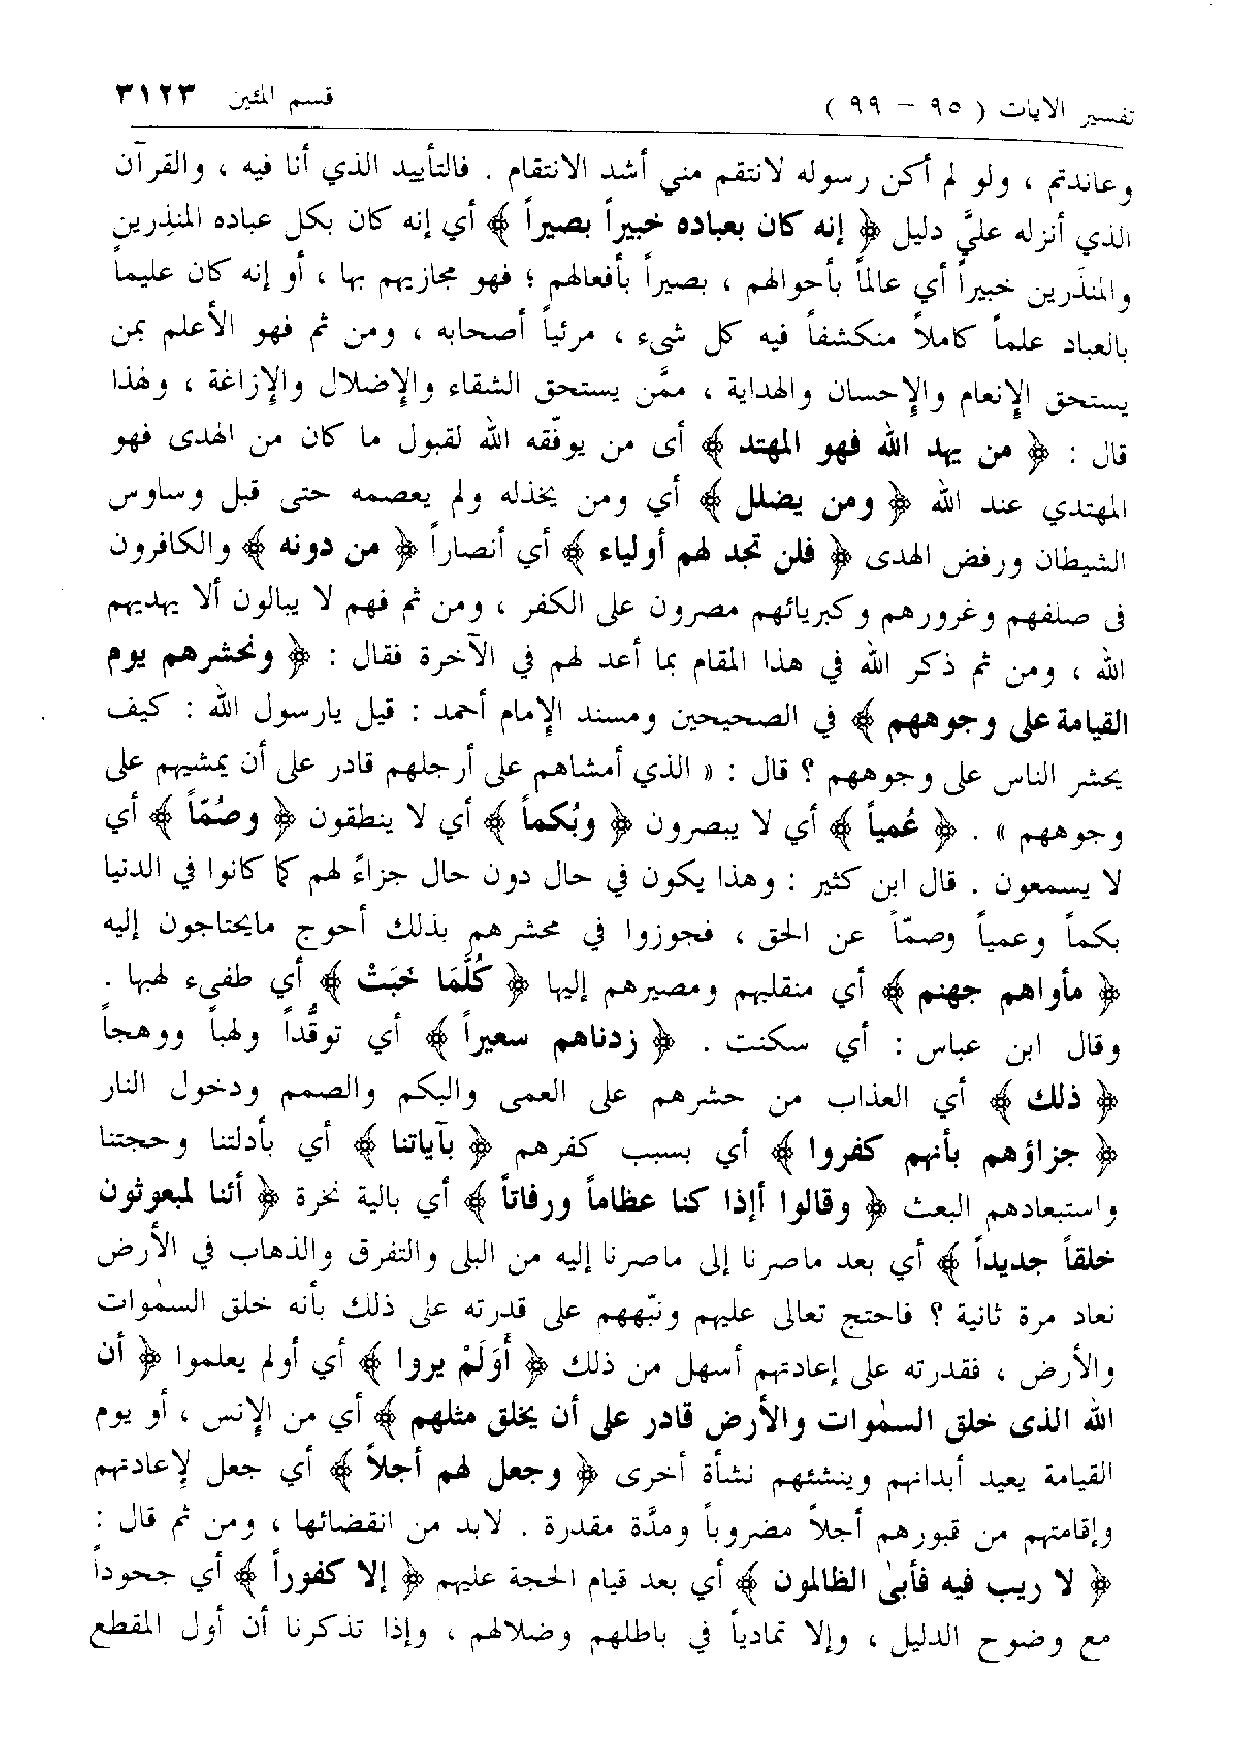 تفسير الآيات ( ٩٥ - ٩٩ ) قسم المئين ٣١٢٣
وعاندتم ، ولو لم أكن رسوله لانتقم مني أشد الانتقام . فالتأييد الذي أنا فيه ، والقرآن
الذي أنزله عليّ دليل ﴿ إنه كان بعباده خبيراً بصيراً ﴾ أي إنه كان بكل عباده المنذِرين
والمنذَرين خبيراً أي عالماً بأحوالهم ، بصيراً بأفعالهم ؛ فهو مجازيهم بها ، أو إنه كان عليماً
بالعباد علماً كاملاً منكشفاً فيه كل شيء ، مرئياً أصحابه ، ومن ثم فهو الأعلم بمن
يستحق الإنعام والإحسان والهداية ، ممَّن يستحق الشقاء والإضلال والإزاغة ، ولهذا
قال : ﴿ من يهد الله فهو المهتد ﴾ أى من يوفّقه الله لقبول ما كان من الهدى فهو
المهتدي عند الله ﴿ ومن يضلل ﴾ أي ومن يخذله ولم يعصمه حتى قبل وساوس
الشيطان ورفض الهدى ﴿ فلن تجد لهم أولياء ﴾ أي أنصاراً ﴿ من دونه ﴾ والكافرون
فى صلفهم وغرورهم وكبريائهم مصرون على الكفر ، ومن ثم فهم لا يبالون ألا يهديهم
الله ، ومن ثم ذكر الله في هذا المقام بما أعد لهم في الآخرة فقال : ﴿ ونحشرهم يوم
القيامة على وجوههم ﴾ في الصحيحين ومسند الإمام أحمد : قيل يارسول الله : كيف
يحشر الناس على وجوههم ؟ قال : « الذي أمشاهم على أرجلهم قادر على أن يمشيهم على
وجوههم » . ﴿ عُمياً ﴾ أي لا يبصرون ﴿ وبُكماً ﴾ أي لا ينطقون ﴿ وصُمّاً ﴾ أي
لا يسمعون . قال ابن كثير : وهذا يكون في حال دون حال جزاءً لهم كما كانوا في الدنيا
بكماً وعمياً وصمّاً عن الحق ، فجوزوا في محشرهم بذلك أحوج مايحتاجون إليه
﴿ مأواهم جهنم ﴾ أي منقلبهم ومصيرهم إليها ﴿ كُلَّمَا خَبَتْ ﴾ أي طفىء لهبها .
وقال ابن عباس : أي سكنت . ﴿ زدناهم سعيراً ﴾ أي توقُّداً ولهباً ووهجاً
﴿ ذلك ﴾ أي العذاب من حشرهم على العمى والبكم والصمم ودخول النار
﴿ جزاؤهم بأنهم كفروا ﴾ أي بسبب كفرهم ﴿ بآياتنا ﴾ أي بأدلتنا وحججنا
واستبعادهم البعث ﴿ وقالوا أإذا كنا عظاماً ورفاتاً ﴾ أي بالية نخرة ﴿ أئنا لمبعوثون
خلقاً جديداً ﴾ أي بعد ماصرنا إلى ماصرنا إليه من البلى والتفرق والذهاب في الأرض
نعاد مرة ثانية ؟ فاحتج تعالى عليهم ونبّههم على قدرته على ذلك بأنه خلق السمٰوات
والأرض ، فقدرته على إعادتهم أسهل من ذلك ﴿ أَوَلَمْ يروا ﴾ أي أولم يعلموا ﴿ أن
الله الذى خلق السمٰوات والأرض قادر على أن يخلق مثلهم ﴾ أي من الإنس ، أو يوم
القيامة يعيد أبدانهم وينشئهم نشأة أخرى ﴿ وجعل لهم أجلاً ﴾ أي جعل لإعادتهم
وإقامتهم من قبورهم أجلاً مضروباً ومدَّة مقدرة . لابد من انقضائها ، ومن ثم قال :
﴿ لا ريب فيه فأبىٰ الظالمون ﴾ أي بعد قيام الحجة عليهم ﴿ إلا كفوراً ﴾ أي جحوداً
مع وضوح الدليل ، وإلا تمادياً في باطلهم وضلالهم ، وإذا تذكرنا أن أول المقطع